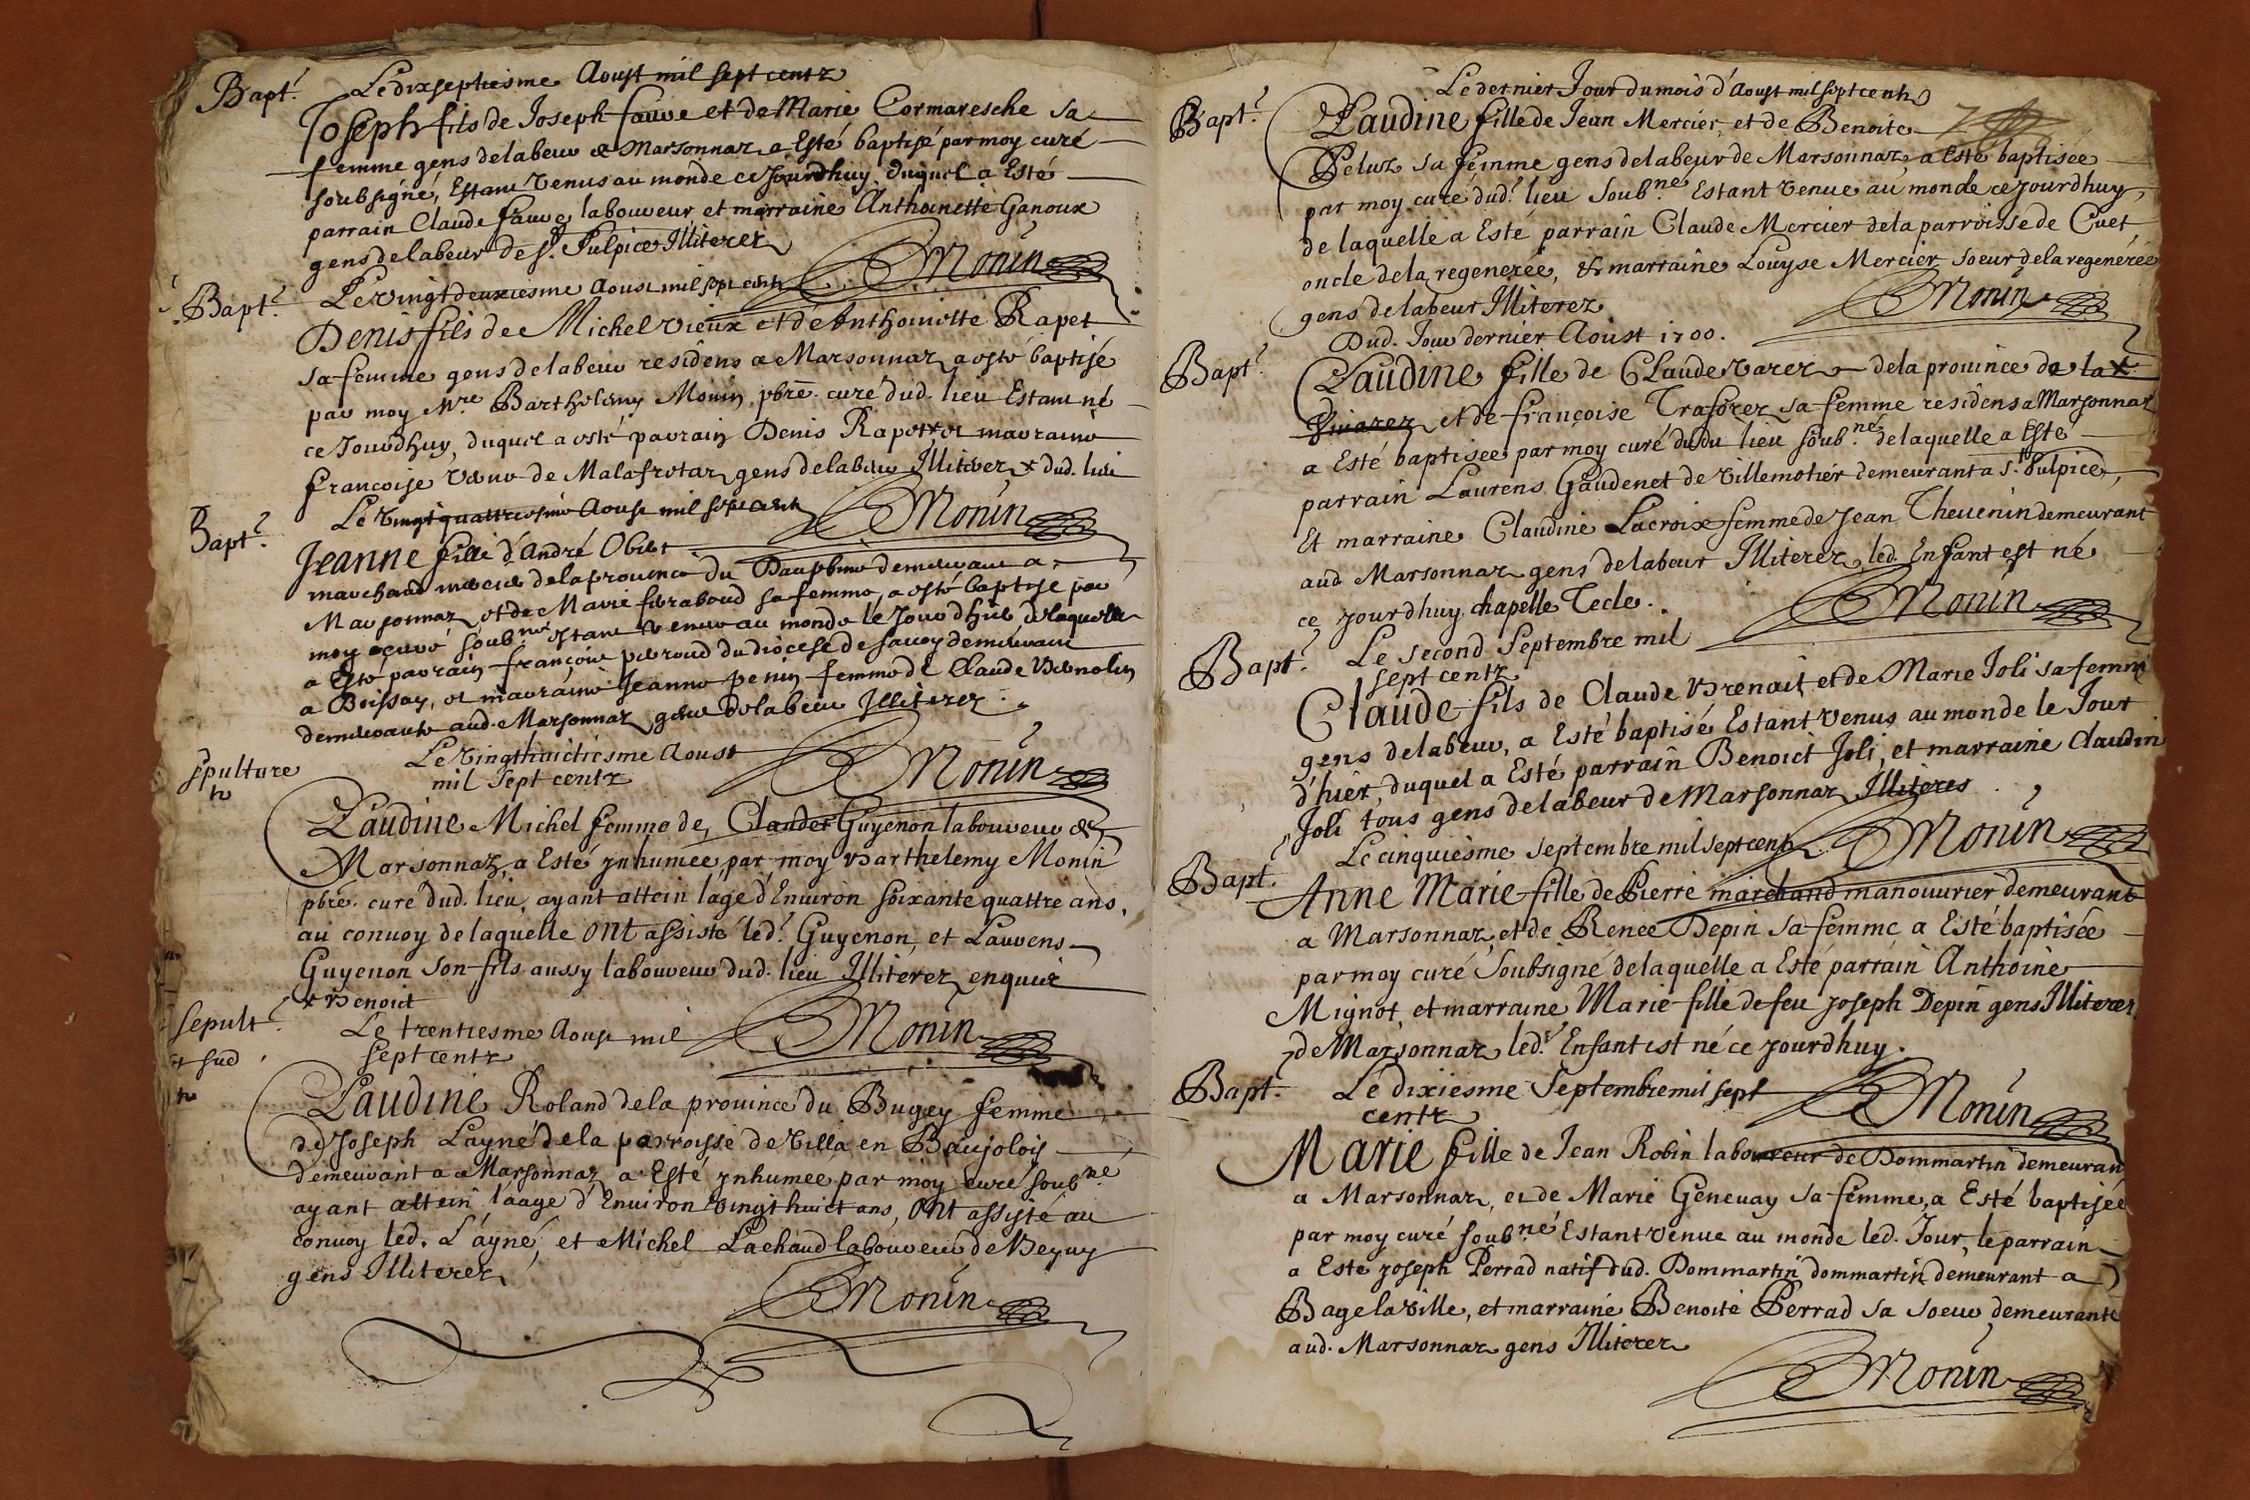 Bapt.
Le dixseptiesme Aoust mil sept centz
Joseph fils de Joseph fauve et de Marie Cormaresche sa
femme gens de labeur de Marsonnaz a Esté baptisé par moy curé
soubsigné, Estant venus au monde ce Jourdhuy, duquel a Esté
parrain Claude fauve laboureur et marraine Anthoinette Ganoux
gens de labeur de St. Sulpice Illiterez
Monin
Bapt.
Le vingtdeuxiesme Aoust mil sept centz
Denis fils de Michel vieux et de Anthoinette Rapet
sa femme gens de labeur residens a Marsonnaz a esté baptisé
par moy Mre Barthelemy Monin pbre. curé dud. lieu Estant né
ce Jourdhuy, duquel a esté parrain Denis Rapet et marraine
francoise de Malafretaz gens de labeur Illiterez x dud. lieu
Monin
Bapt.
Le vingtquattriesme Aoust mil sept centz
Jeanne fille d'André
marchand de la prouince du Dauphiné demeurant a
Marsonnaz, et de Marie sa femme, a esté baptisé par
moy curé soubné estant venue au monde le Jourdhuy de laquelle
a Esté parrain françois du diocese de savoy demeurant
a Boissay, et marraine Jeanne femme de Claude
demeurants aud. Marsonnaz gens de labeur Illiterez
Monin
sepulture
Le vingthuictiesme Aoust
mil sept centz
Claudine Michel femme de, Claude Guyenon laboureur de
Marsonnaz, a Esté ynhumée par moy Barthelemy Monin
pbre. curé dud. lieu, ayant attein lage d'Enuiron soixante quattre ans,
au conuoy de laquelle ont assisté led. Guyenon, et Laurens
Guyenon son fils aussy laboureur dud. lieu Illiterez enquis
x Benoict
Monin
sepult.
Le trentiesme Aoust mil
sept centz
Claudine Roland de la prouince du Bugey femme
de Joseph Layné de la parroisse de Villa en Baujolois
demeurant a Marsonnaz a Esté ynhumée par moy curé soubné
ayant attein l'aage d'Enuiron vingthuict ans, ont assisté au
conuoy led. L'ayné, et Michel Lachaud laboureur de
gens Illiterez
Monin
Bapt.
Le dernier Jour du mois d'Aoust mil sept centz
Claudine fille de Jean Mercier et de Benoite
Peluz sa femme gens de labeur de Marsonnaz, a Esté baptisée
par moy curé dud. lieu soubné Estant venue au monde ce yourdhuy,
de laquelle a Esté parrain Claude Mercier de la parroisse de Cuet
oncle de la regenerée, et marraine Louyse Mercier soeur de la regenerée
gens de labeur Illiterez
Monin
Bapt.
Dud. Jour dernier Aoust 1700.
Claudine fille de Claude Varez de la prouince de la
et de françoise Traforez sa femme residens a Marsonnaz
a Esté baptisée par moy curé dudu lieu soubné de laquelle a Esté
parrain Laurens Gaudenet de Villemotier demeurant a St. Sulpice,
Et marraine Claudine Lacroix femme de Jean Theuenin demeurant
aud Marsonnaz gens de labeur Illiterez, led. Enfant est né
ce yourdhuy chapelle Tecle.
Monin
Bapt.
Le second Septembre mil
sept centz
Claude fils de Claude Brenait et de Marie Joli sa femme
gens de labeur, a Esté baptisé Estant venus au monde le Jour
d'hier, duquel a Esté parrain Benoict Joli, et marraine Claudine
Joli tous gens de labeur de Marsonnaz Illiteres
Monin
Bapt.
Le cinquiesme Septembre mil sept centz
Anne Marie fille de Pierre marchand manouurier demeurant
a Marsonnaz, et de Renée Depin sa femme a Esté baptisée
par moy curé soubsigné de laquelle a Esté parrain Anthoine
Mignot, et marraine Marie fille de feu Joseph Depin gens Illiterez
de Marsonnaz led. Enfant est né ce yourdhuy.
Monin
Bapt.
Le dixiesme Septembre mil sept
centz
Marie fille de Jean Robin laboureur de Dommartin demeurant
a Marsonnaz, et de Marie Geneuay sa femme, a Esté baptisée
par moy curé soubné Estant venue au monde led. Jour, le parrain
a Esté Joseph Perrad natif dud. Dommartin dommartin demeurant a
Bage la ville, et marraine Benoite Perrad sa soeur demeurante
aud. Marsonnaz gens Illiterez
Monin